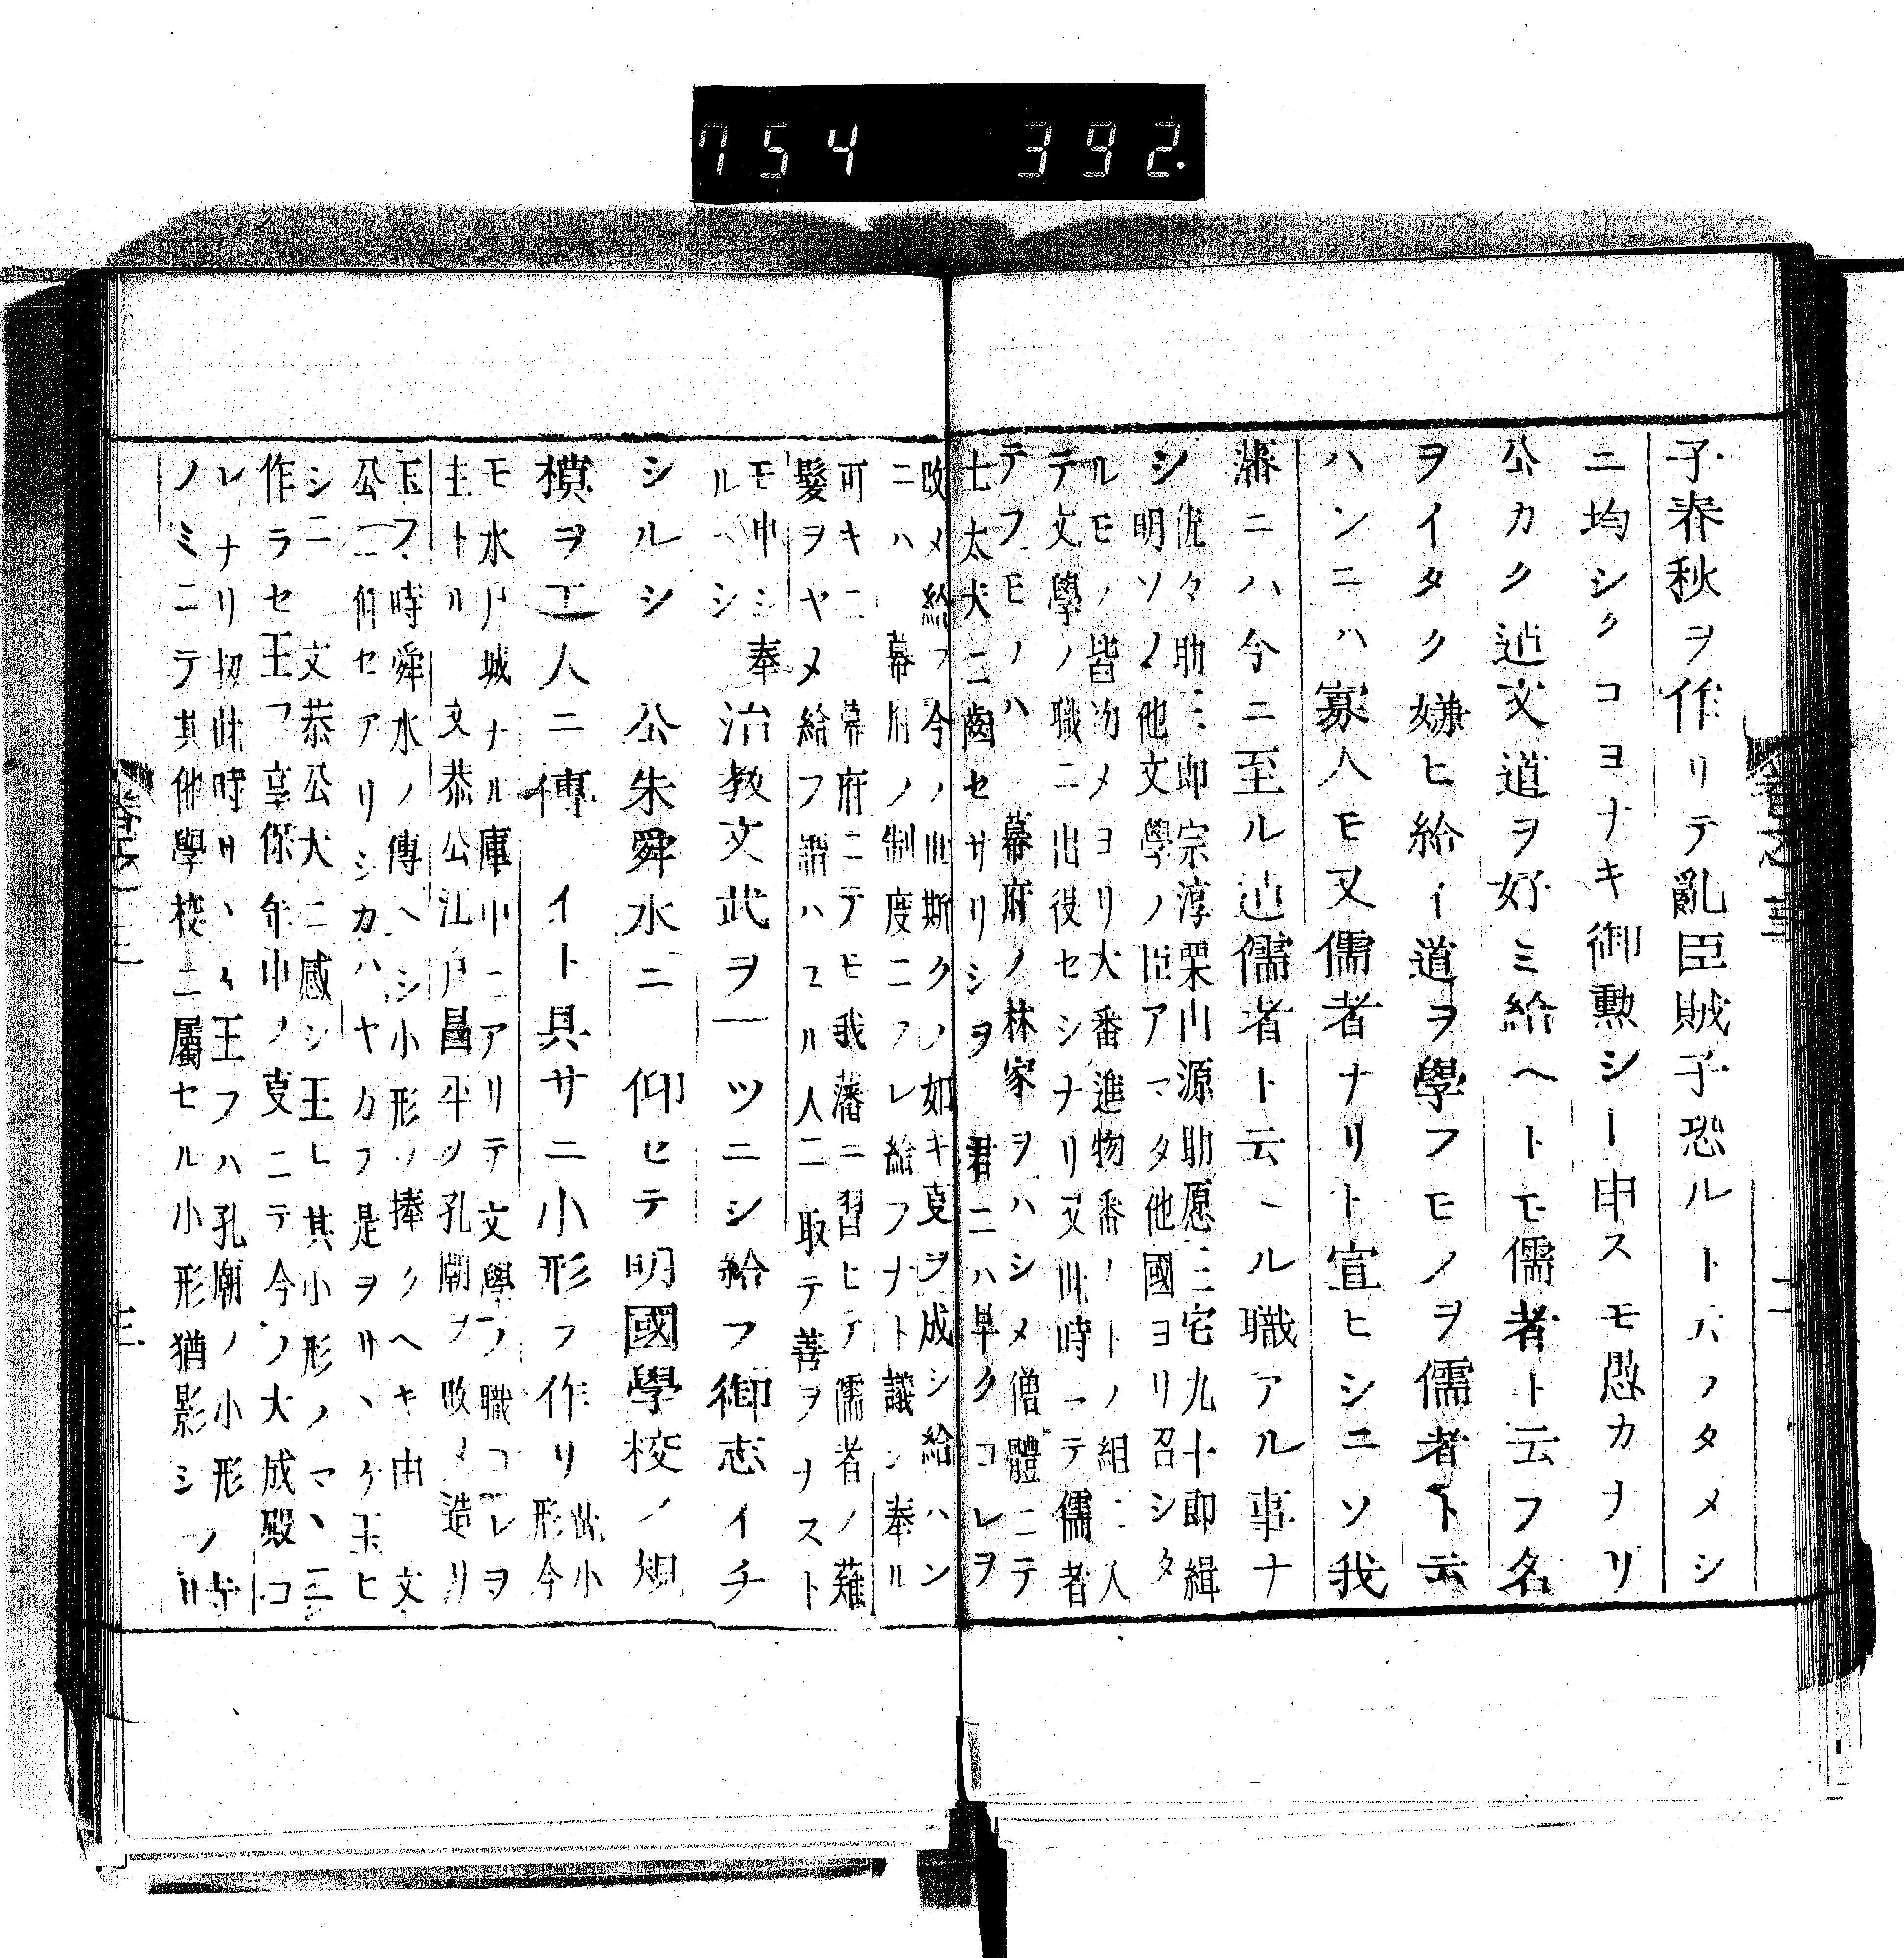 754 392
子春秋ヲ作リテ亂臣賊子恐ルト云フタメシ
ニ均シクコヨナキ御勲シー申スモ愚カナリ
公カク迠文道ヲ好ミ給ヘトモ儒者ト云フ名
ヲイタク嫌ヒ給ィ道ヲ學フモノヲ儒者ト云
ハンニハ寡人モ又儒者ナリト宣ヒシニソ我
藩ニハ今ニ至ル迠儒者ト云ヽル職アル事ナ
シ
佐々助三郎宗淳栗山源助愿三宅九十郎緝
明ソノ他文學ノ臣アマタ他國ヨリ召シタ
ルモノ皆初メヨリ大番進物番ノトノ組ニ入
テ文學ノ職ニ出役セシナリ又此時マテ儒者
テフモノハ 幕府ノ林家ヲハシメ僧體ニテ
士太夫ニ齒セサリシヲ 君ニハ早クコレヲ
改メ給フ今ノ世斯クノ如キ叓ヲ成シ給ハン
ニハ 幕府ノ制度ニフレ給フナト議シ奉ル
可キニ 幕府ニテモ我藩ニ習ヒテ儒者ノ薙
髮ヲヤメ給フ謂ハユル人ニ取テ善ヲナスト
モ申シ奉
ルヘシ
治教文武ヲ一ツニシ給フ御志イチ
シルシ 公朱舜水ニ 仰セテ明國學校ノ規
摸ヲ工人ニ傳 イト具サニ小形フ作リ
此小
形今
モ水戸城ナル庫中ニアリテ文學ノ職コレヲ
主トル 文恭公江戸昌平ノ孔廟ヲ改メ造リ
玉フ時舜水ノ傳ヘシ小形ソ捧クヘキ由 文
公ニ仰セアリシカハヤカフ是ヲサヽケ玉ヒ
シニ 文恭公大ニ感シ玉ヒ其小形ノマヽニ
作ラセ玉フ享保年中ノ叓ニテ今ノ大成殿コ
レナリ扨此時サヽケ玉フハ孔廟ノ小形ノ
ノミニテ其他學校ニ屬セル小形猶影シ